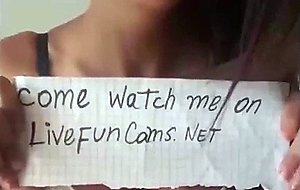 Come Watch me on
LiveFunCams.NET